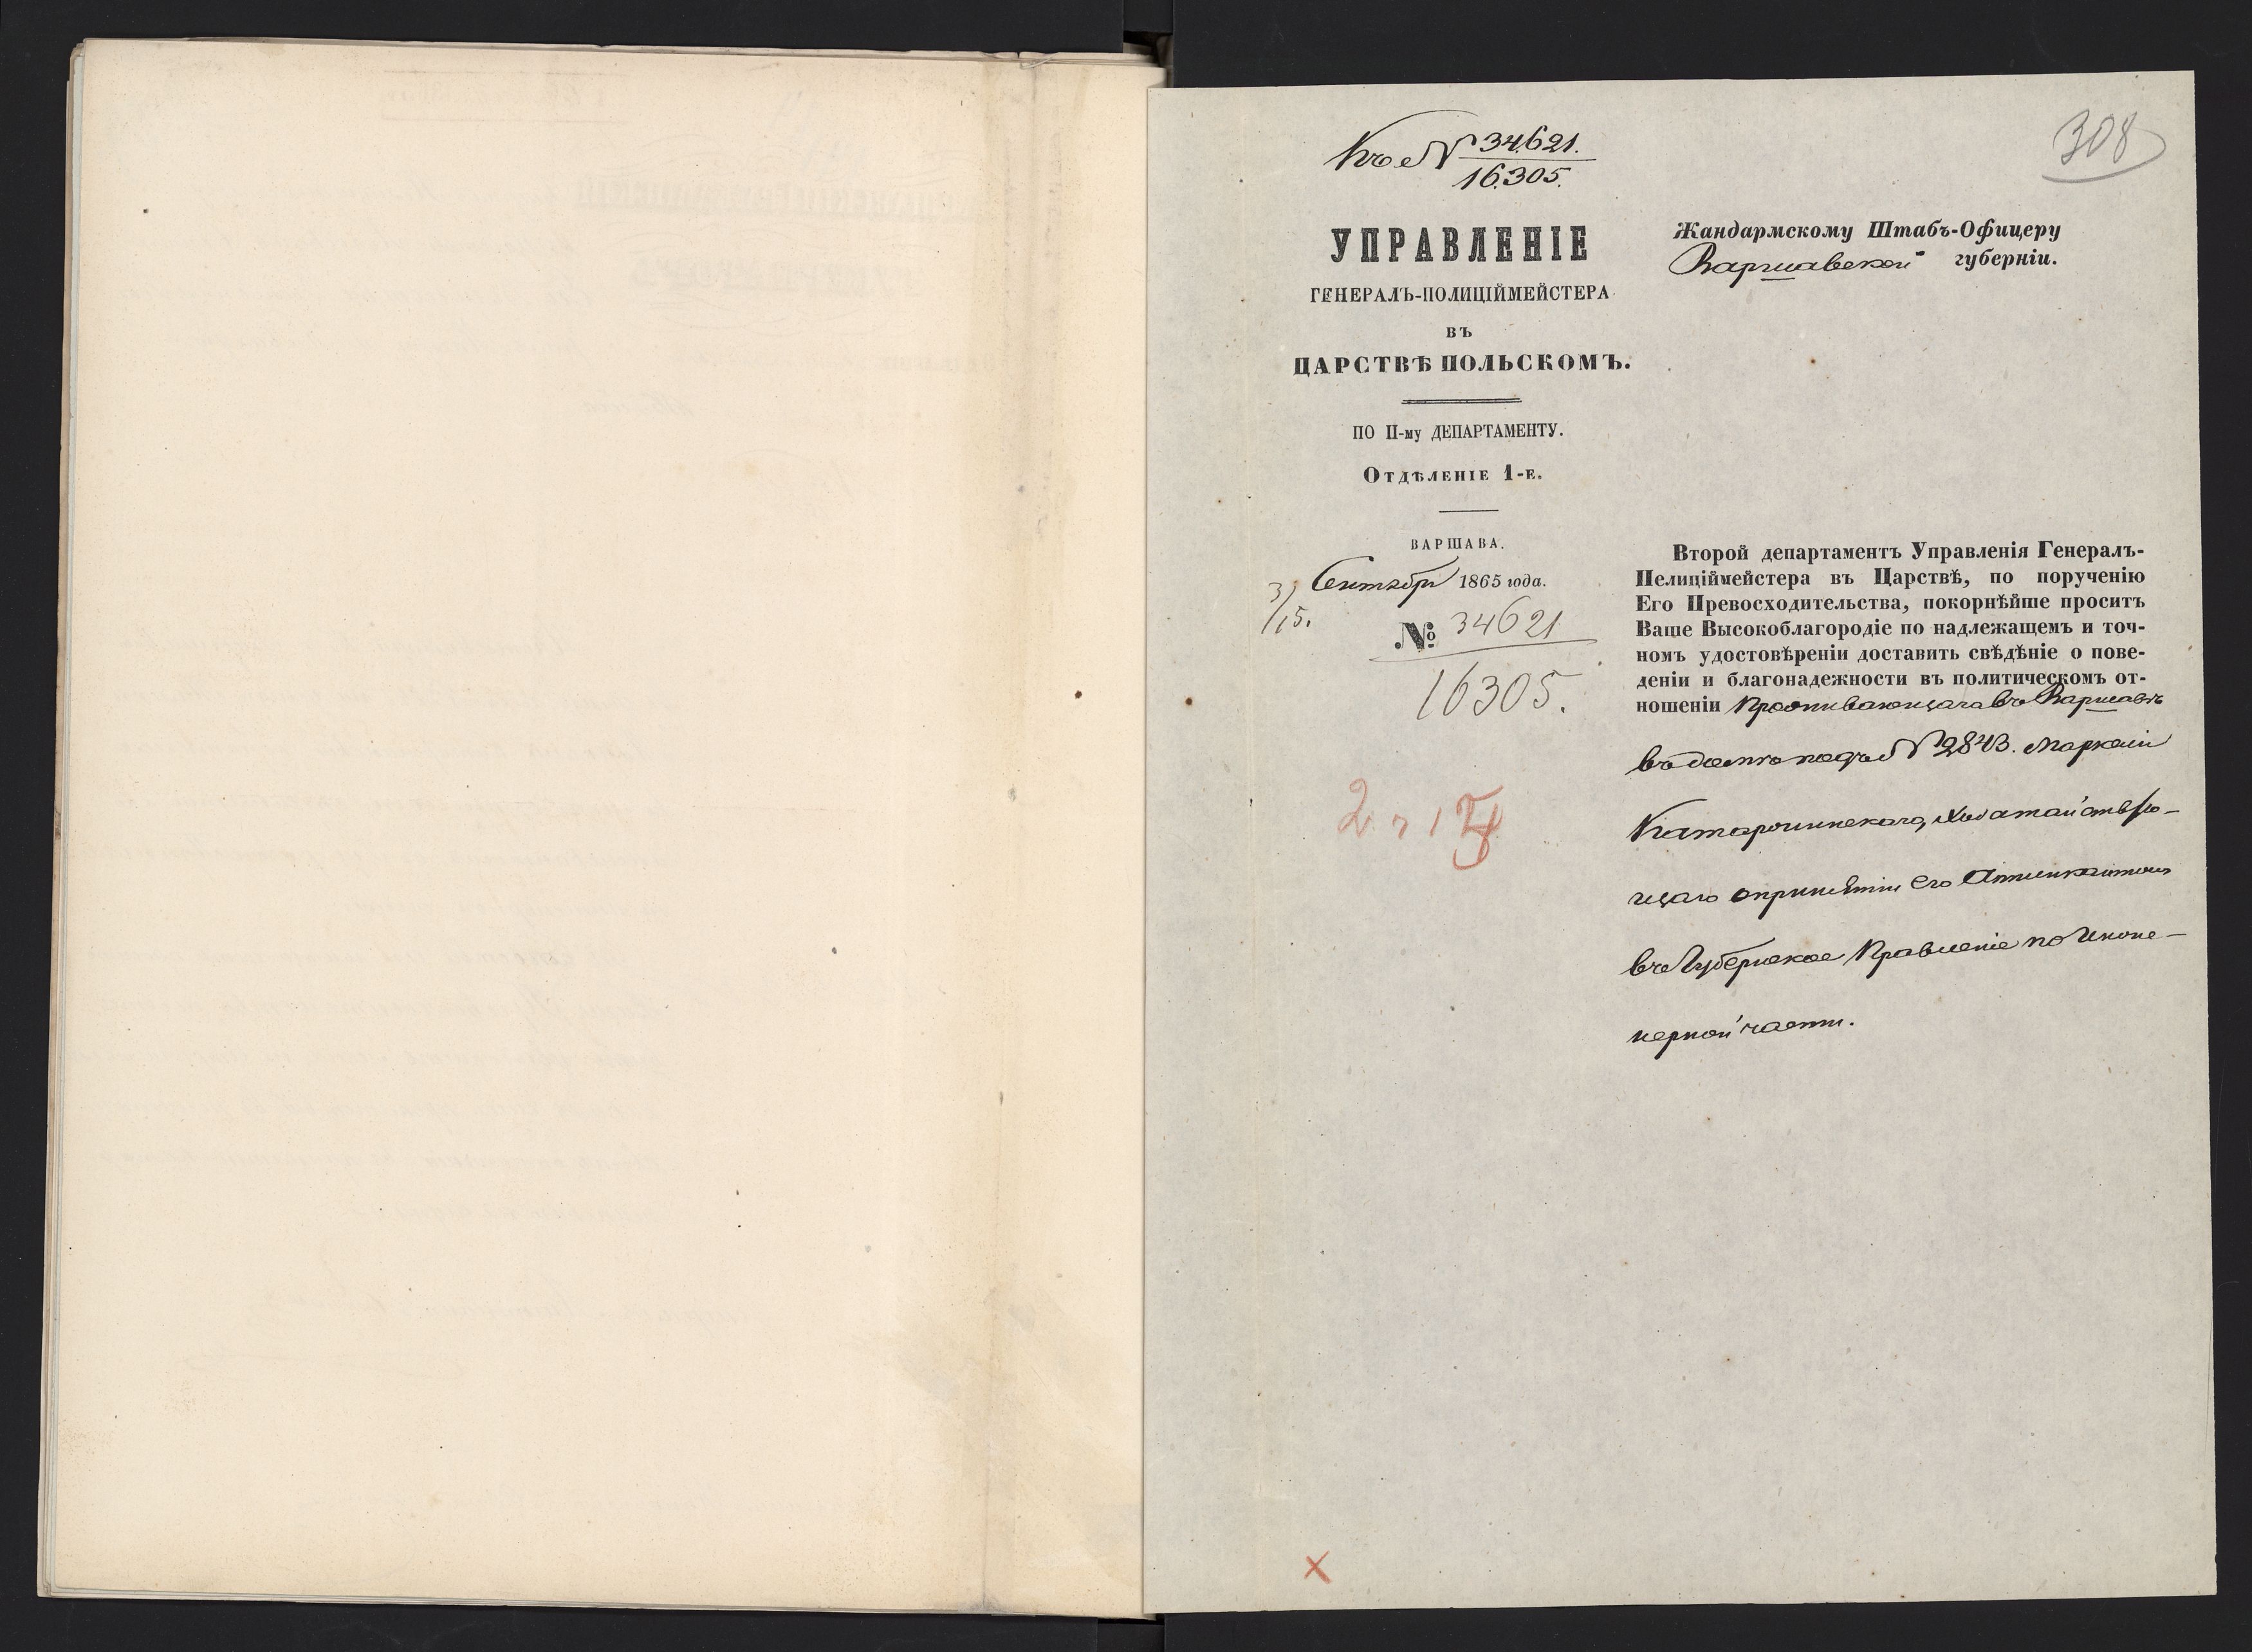 Къ № 34621.
16305.
308
УПРАВЛЕНІЕ
ГЕНЕРАЛЪ-ПОЛИЦІЙМЕЙСТЕРА
ВЪ
ЦАРСТВѢ ПОЛЬСКОМЪ.
ПО II-му ДЕПАРТАМЕНТУ.
Отдѣленіе 1-е.
ВАРШАВА.
3/15. Сентября 1865 года.
№ 34621
16305.
Жандармскому Штабъ-Офицеру
Варшавской губерніи.
Второй департаментъ Управленія Генералъ-
Пелиціймейстера въ Царствѣ, по порученію
Его Превосходительства, покорнѣйше проситъ
Ваше Высокоблагородіе по надлежащемъ и точ-
номъ удостовѣреніи доставить свѣдѣніе о пове-
деніи и благонадежности въ политическомъ от-
ношеніи проживающаго въ Варшавѣ
въ домѣ подъ № 2843.
ходатайствую-
щаго о принятіи его Аппликантомъ
въ Губернское Правленіе по Инже-
нерной части.